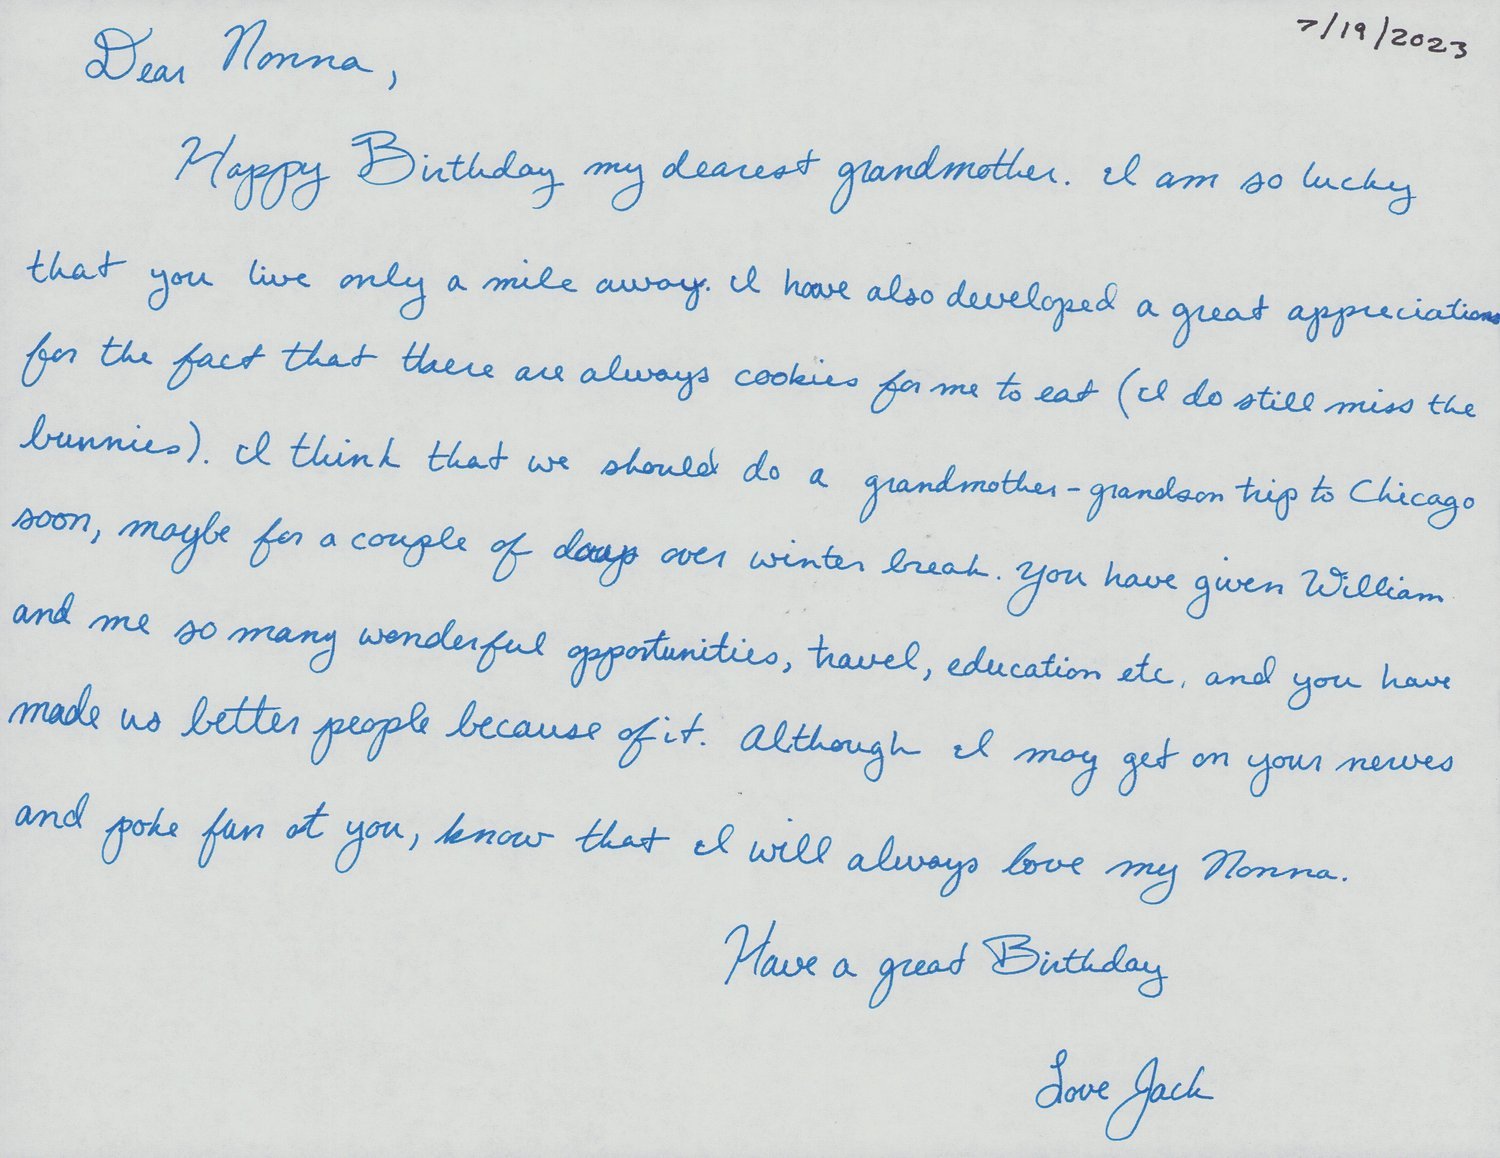 7/19/2023
Dear Nonna,
Happy Birthday my dearest grandmother. I am so lucky
that you live only a mile away. I have also developed a great appreciation
for the fact that there are always cookies for me to eat (I do still miss the
bunnies). I think that we should do a grandmother-grandson trip to Chicago
soon, maybe for a couple of days over winter break. You have given William
and me so many wonderful opportunities, travel, education etc. and you have
made us better people because of it. Although I may get on your nerves
and poke fun at you, know that I will always love my Nonna.
Have a great Birthday
Love Jack